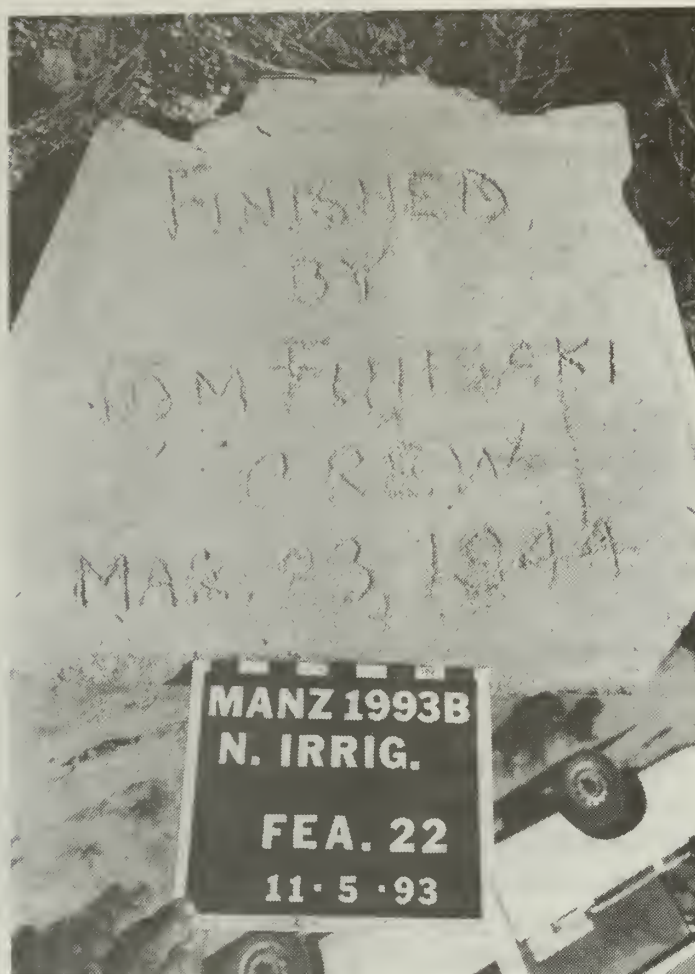 FINISHED
BY
TOM FUJISAKI
CREW
MAR. 23, 1944
MANZ 1993B
N. IRRIG.
FEA. 22
11·5·93